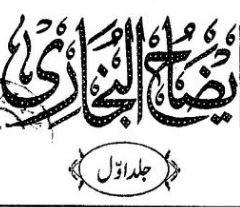 یضاح البخاری
جلد اوّل